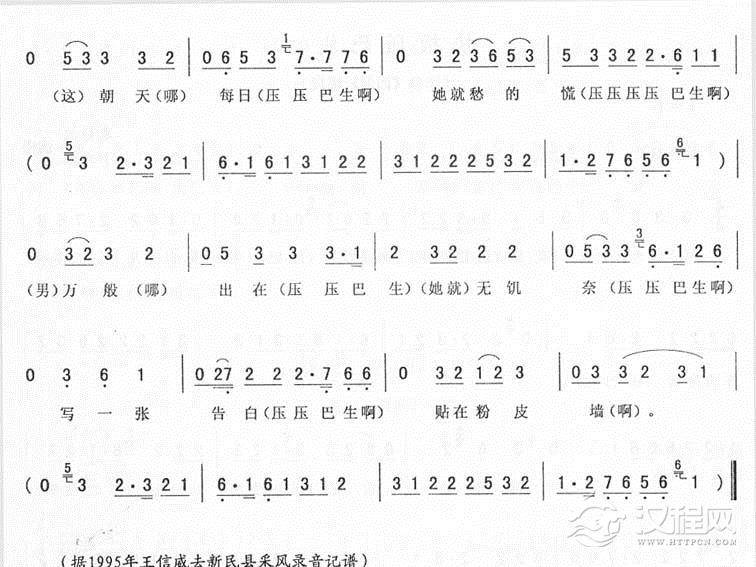 0 533 32 | 065 3 1 7·776 | 0 323653 | 5 3322·611
（这）朝天（哪） 每日（压压巴生啊） 她就愁的 慌（压压压压巴生啊）
（0 5 3 2·321 | 6·161 3122 | 3122 2532 | 1·27656 6 1）
0 323 2 | 05 3 3 3·1 | 2 322 2 2 | 0533 3 6·126
（男）万般（哪） 出在（压压巴 生）（她就）无饥 奈（压压巴生啊）
0 3 6 1 | 027 222·766 | 0 32123 | 03 32 31
写一张 告白（压压巴生啊） 贴在粉皮 墙（啊）。
（0 5 3 2·321 | 6·161 312 | 3122 2532 | 1·27656 6 1）
（据1995年王信威去新民县采风录音记谱）
汉程网
WWW.HTTPCN.COM